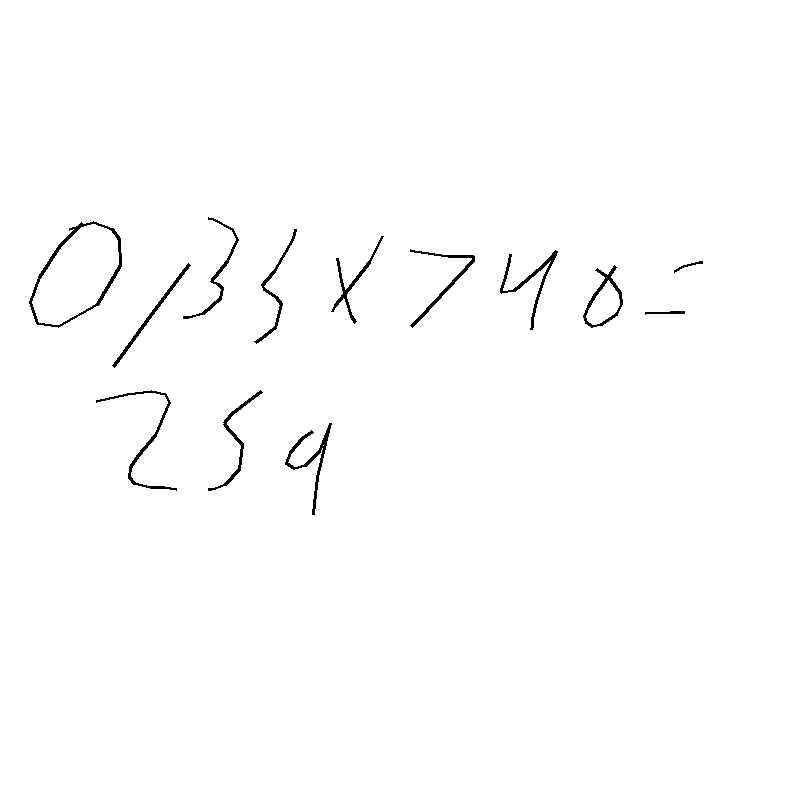 0,35x740=
259